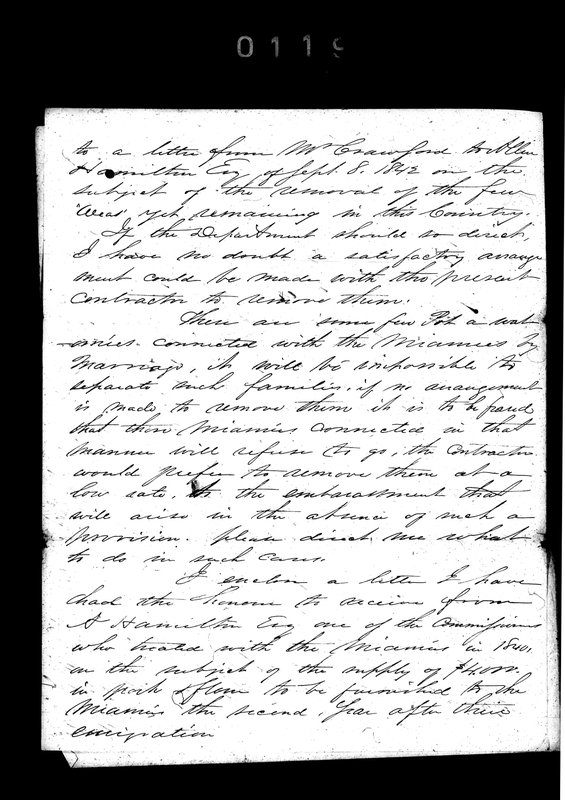 0119
to a letter from Mr Crawford to Allen
Hamilton Esq of Sept. 8. 1842 on the
subject of the removal of the few
"Weas" yet remaining in this Country.
If the Department should so direct,
I have no doubt a satisfactory arrange
ment could be made with the present
Contractor to remove them.
There are some few Pot a wat
omies connected with the Miamies by
Marriage, it will be impossible to
separate such families, if no arrangement
is made to remove them it is to be feared
that those Miamies connected in that
manner will refuse to go, the Contractors
would prefer to remove them at a
low rate, to the embarassment that
will arise in the absence of such a
provision. please direct me what
to do in such cases.
I enclose a letter I have
had the honour to receive from
A Hamilton Esq one of the Commissioners
who treated with the Miamies in 1840,
on the subject of the supply of $4,000.
in pork & flour to be furnished to the
Miamies the second Year after their
emigration